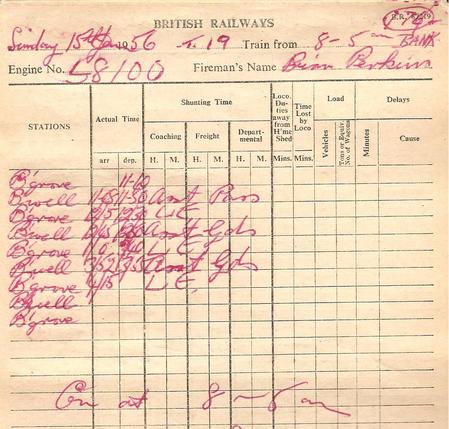 BRITISH RAILWAYS B.R.
Sunday 15th Jan 1956 T. 19 Train from 8-5 am BANK
Engine No. 58100 Fireman's Name Brian Perkins
STATIONS
Actual Time
arr dep.
Shunting Time
Coaching Freight Depart-mental
H. M. H. M. H. M.
Loco. Du-ties away from H'me Shed
Mins.
Time Lost by Loco
Mins.
Load
Vehicles
Tons or Equiv. No. of Wagons
Delays
Minutes
Cause
B'grove 11-10
B'well 11-50 Asst Pass
B'grove L.E.
B'well Asst Gds
B'grove L.E.
B'well Asst Gds
B'grove L.E.
B'well
B'grove
On at 8-5 am